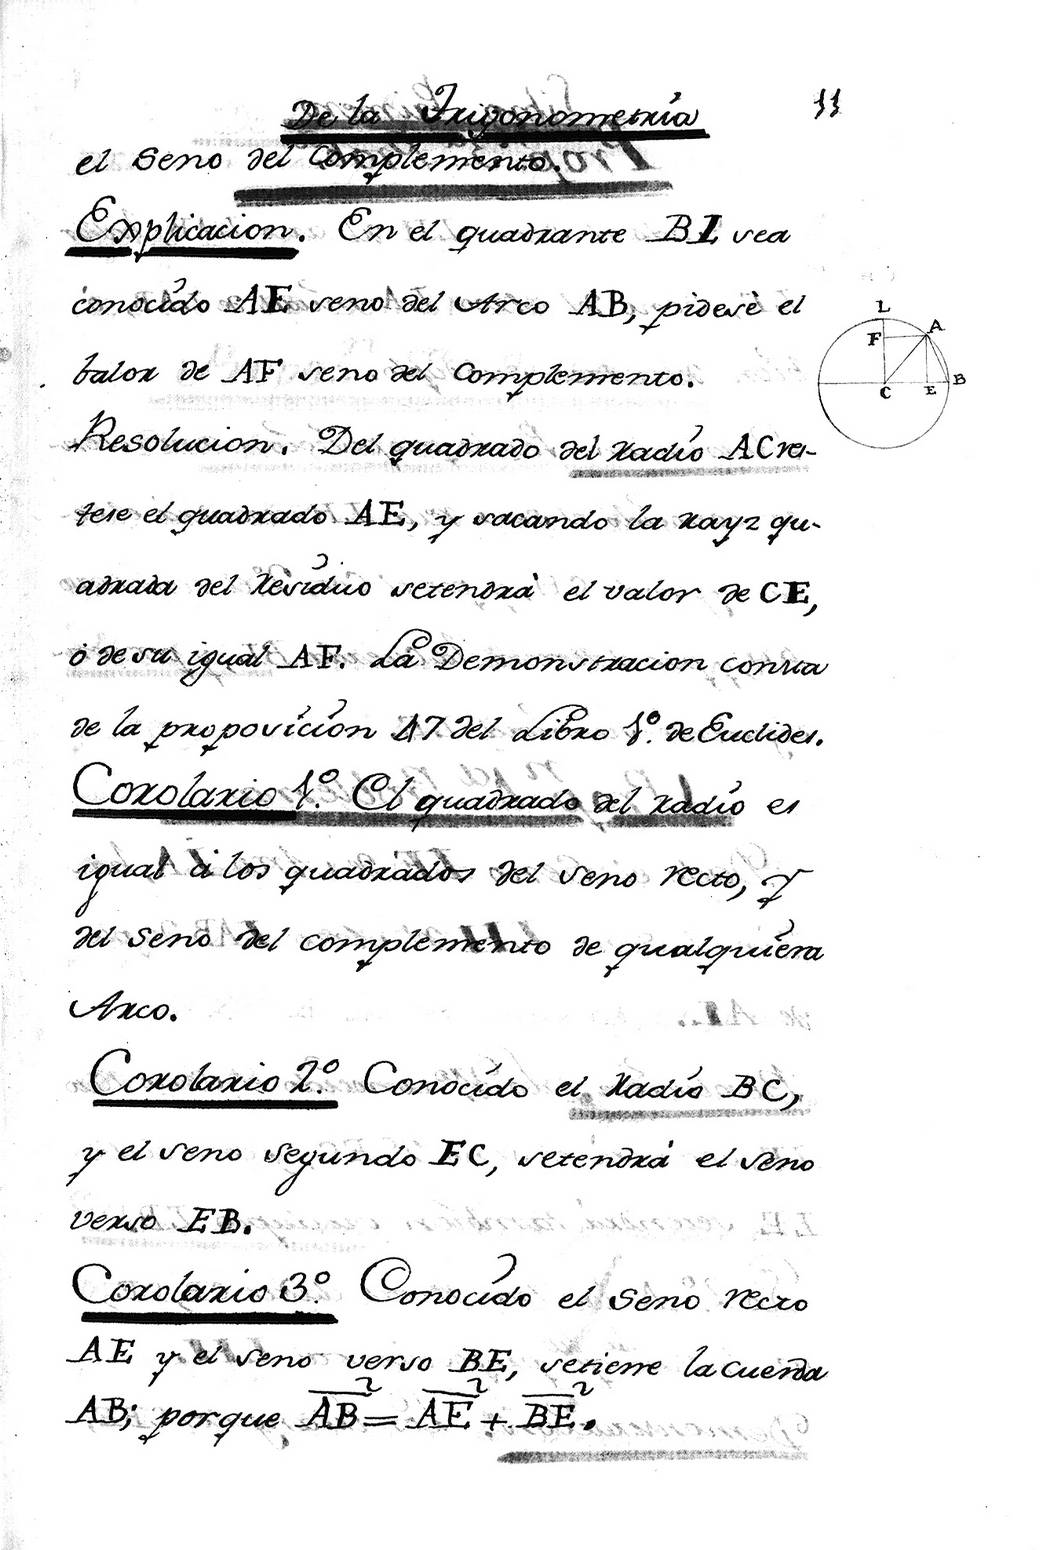 De la Trigonometria 11
el Seno del Complemento.
Explicacion. En el quadrante BL sea
conocido AE seno del Arco AB, pidese el
balor de AF seno del Complemento.
L
A
F
C
E
B
Resolucion. Del quadrado del Radio AC res-
tese el quadrado AE, y sacando la rayz qu-
adrada del Residuo setendrà el valor de CE,
ò de su igual AF. La Demonstracion consta
de la proposicion 47 del Libro 1º. de Euclides.
Corolario 1º. El quadrado del radio es
igual à los quadrados del seno recto, y
del Seno del complemento de qualquiera
Arco.
Corolario 2º. Conocido el Radio BC,
y el seno segundo EC, setendrà el seno
verso EB.
Corolario 3º. Conocido el Seno recto
AE y el seno verso BE, setiene la cuerda
AB; porque AB² = AE² + BE².